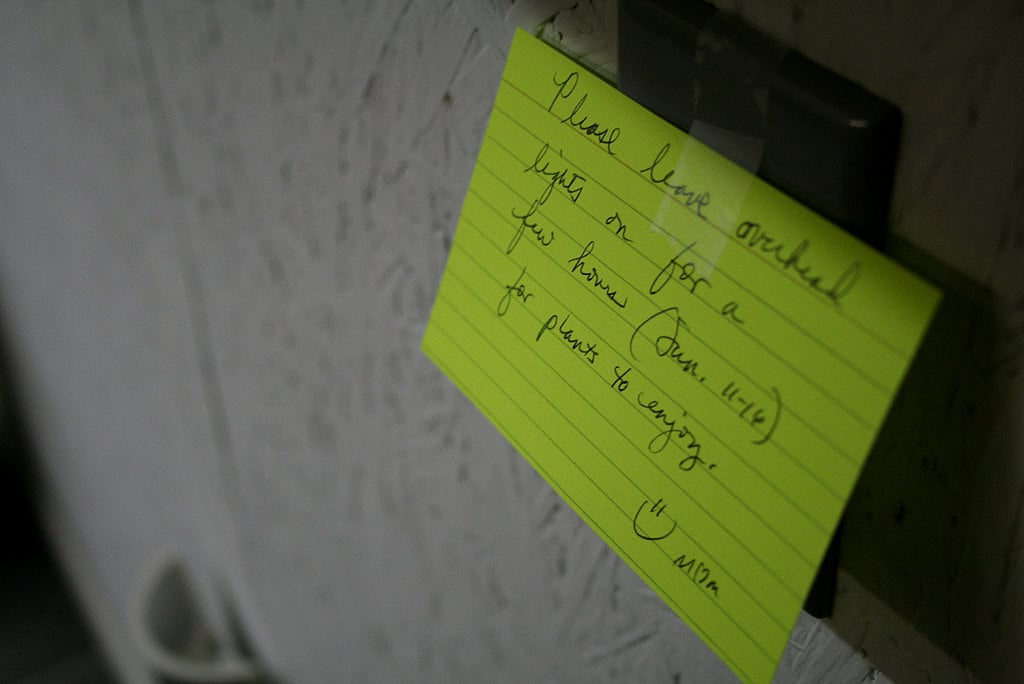 Please leave overhead
lights on for a
few hours (Sun. 11-16)
for plants to enjoy.
Mom